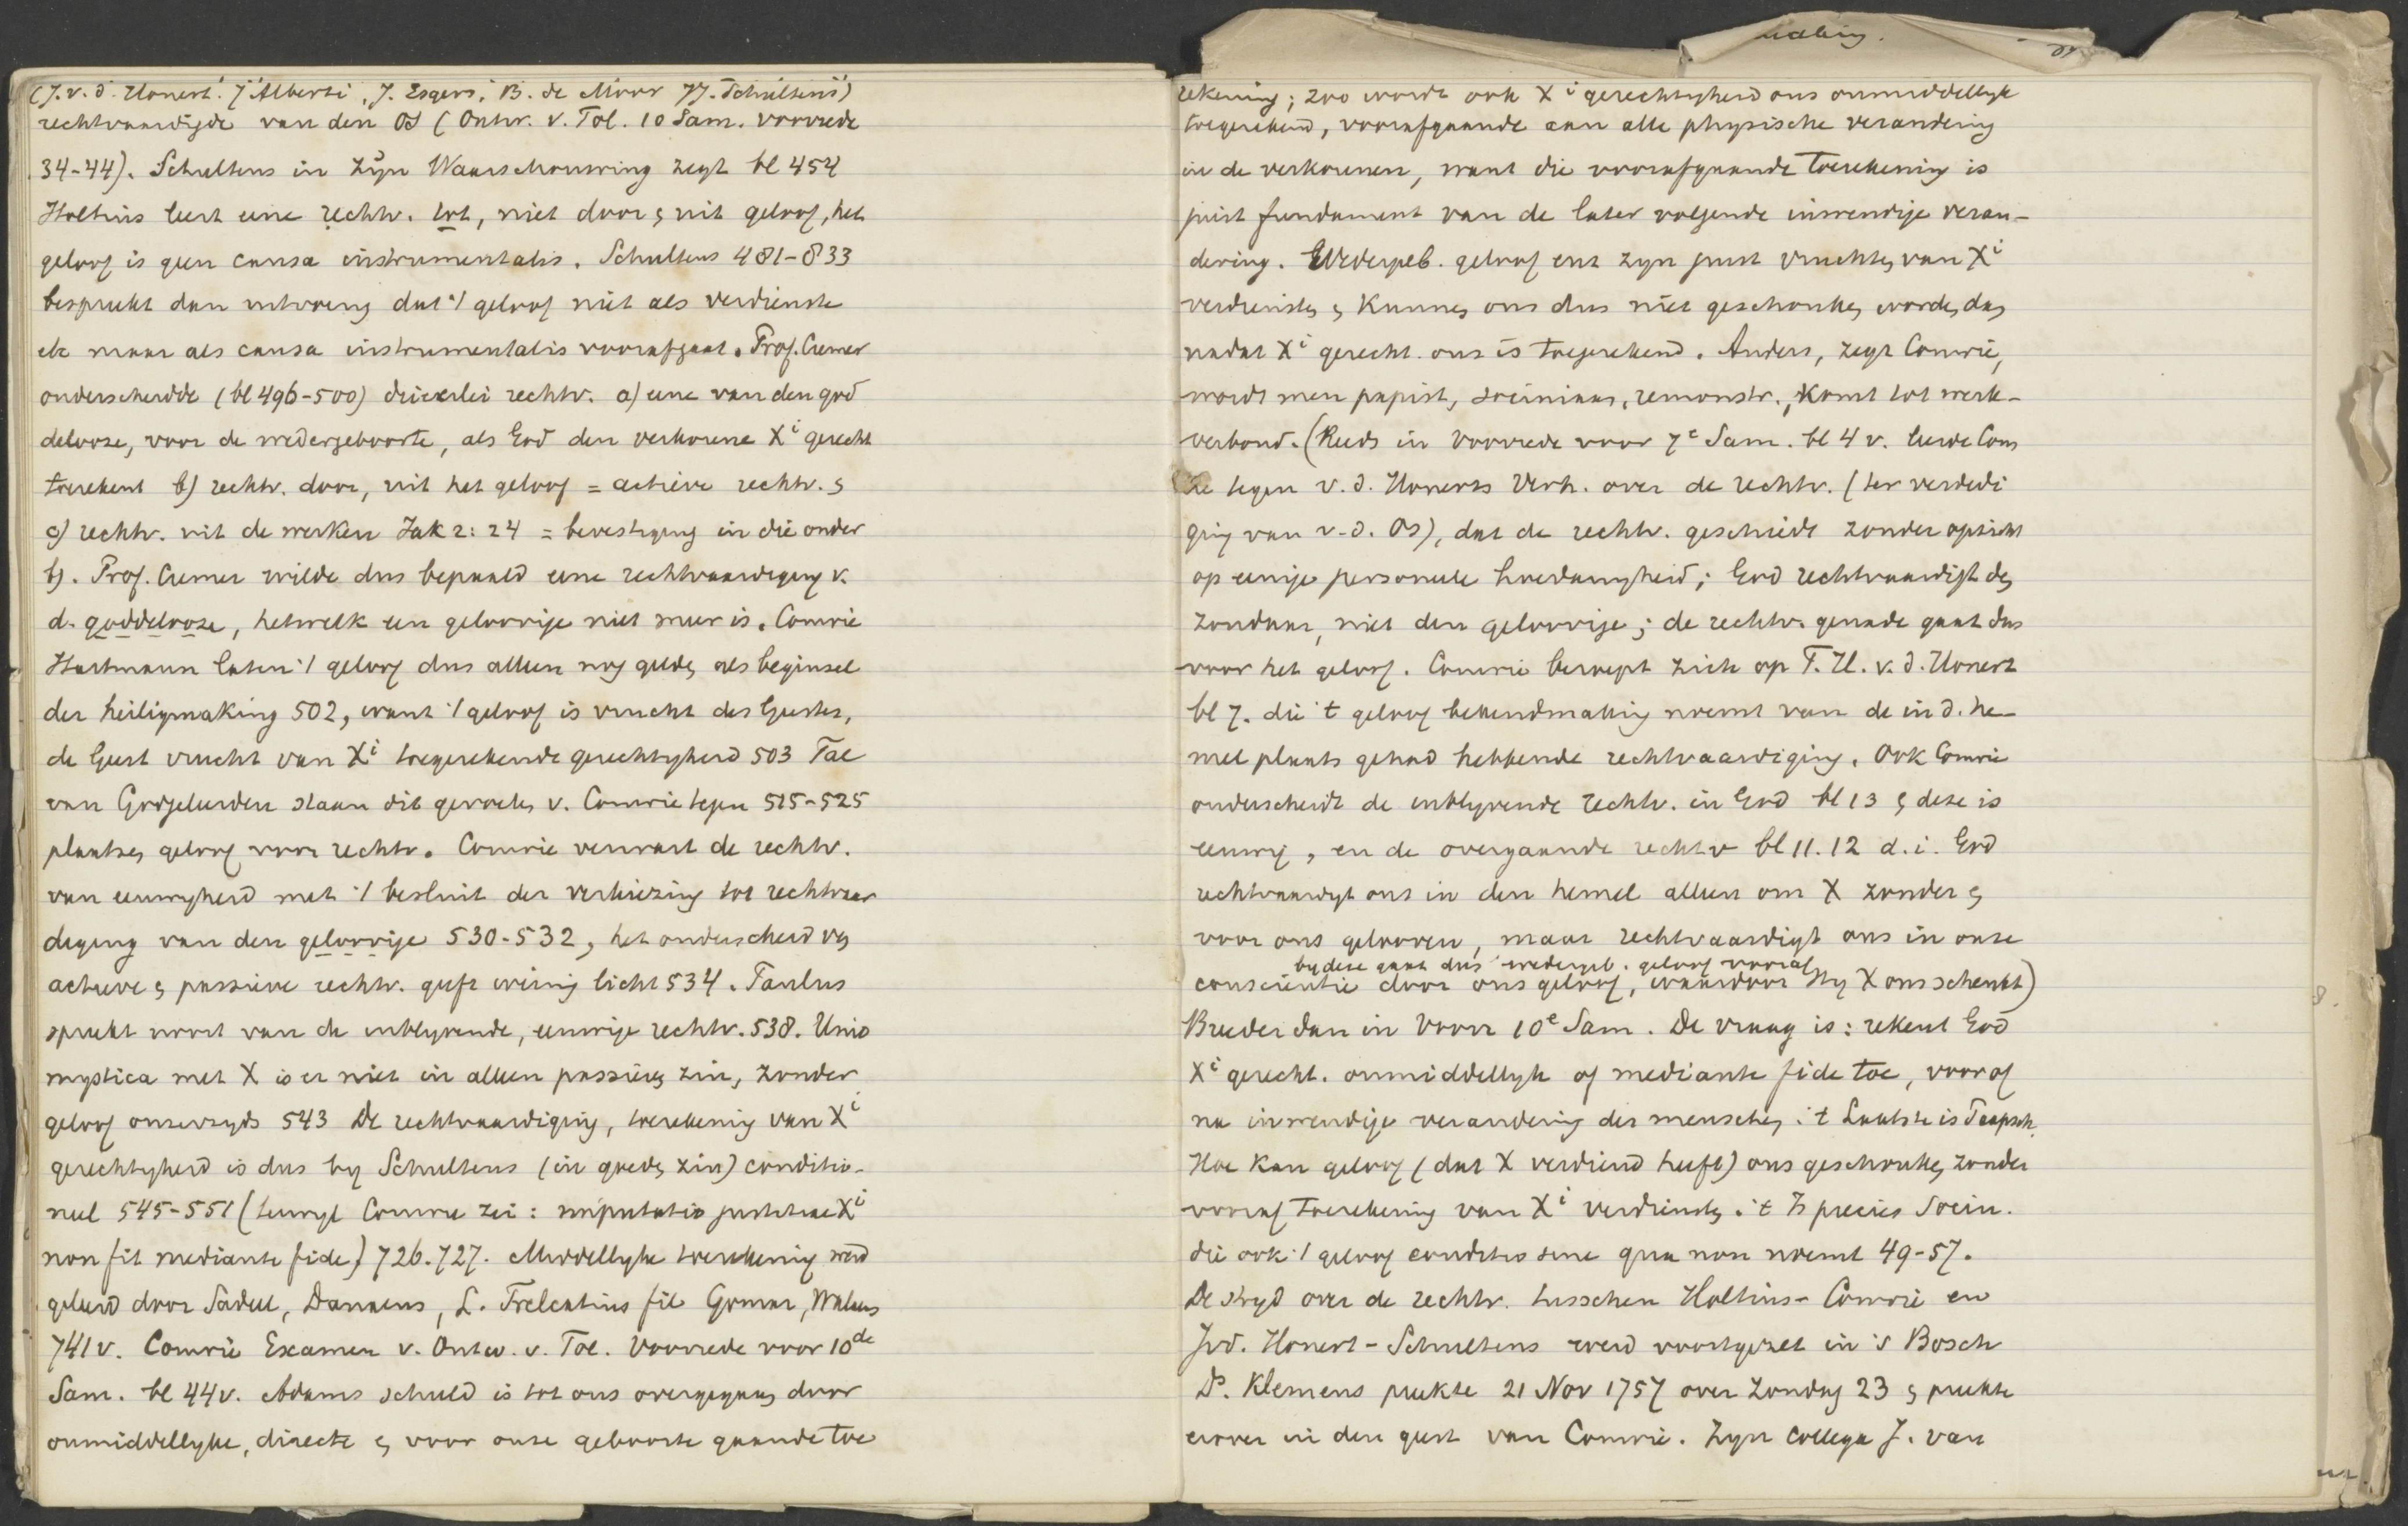 (J. v. d. Honert. J. Alberti, J. Esgers, B. de Moor JJ. Schultens)
rechtvaardigde van den Os (Ontw. v. Tol. 10 Sam. voorrede
34-44). Schultens in zijn Waarschouwing zegt bl 454
Holtius leert eene rechtv. tot, niet door & uit geloof, het
geloof is geen causa instrumentalis. Schultens 481-833
bespreekt dan uitvoerig dat 't geloof niet als verdienste
etc maar als causa instrumentalis voorafgaat. Prof. Cremer
onderscheidde (bl 496-500) drieërlei rechtv. a) eene van den god
delooze, voor de wedergeboorte, als God den verkorene Xi gerecht
toerekent b) rechtv. door, uit het geloof = actieve rechtv. &
c) rechtv. uit de werken Jak 2:24 = bevestiging in die onder
b). Prof. Cremer wilde dus bepaald eene rechtvaardiging v.
d. goddelooze, hetwelk een geloovige niet meer is. Comrie
Hartmann laten 't geloof dus alleen nog gelden als beginsel
der heiligmaking 502, want 't geloof is vrucht des Geestes,
de Geest vrucht van Xi toegerekende gerechtigheid 503 Tal
van Godgeleerden staan dit gevoelen v. Comrie tegen 515-525
plaatsen geloof voor rechtv. Comrie verwart de rechtv.
van eeuwigheid met 't besluit der verkiezing tot rechtvaar
diging van den geloovige 530-532, het onderscheid van
actieve & passieve rechtv. geeft weinig licht 534. Paulus
spreekt nooit van de inblijvende, eeuwige rechtv. 538. Unio
mystica met X is er niet in alleen passieven zin, zonder
geloof onzerzyds 543 De rechtvaardiging, toerekening van Xi
gerechtigheid is dus by Schultens (in goeden zin) conditio-
neel 545-551 (terwyl Comrie zei: imputatio justitiae Xi
non fit mediante fide) 726.727. Middellyke toerekening werd
geleerd door Sadeel, Danaeus, L. Trelcatius fil Gomar, Walaeus
741 v. Comrie Examen v. Ontw. v. Tol. Voorrede voor 10de
Sam. bl 44 v. Adams schuld is tot ons overgegaan door
onmiddellyke, directe & voor onze geboorte gaande toe
rekening; zoo wordt ook Xi gerechtigheid ons onmiddellyk
toegerekend, voorafgaande aan alle physische verandering
in de verkorenen, want die voorafgaande toerekening is
juist fundament van de later volgende inwendige veran-
dering. Wedergeb. geloof enz zyn juist vruchten van Xi
verdiensten & kunnen ons dus niet geschonken worden, dan
nadat Xi gerecht. ons is toegerekend. Anders, zegt Comrie,
wordt men papist, sociniaan, remonstr., komt tot werk-
verbond. (Reeds in Voorrede voor 7e Sam. bl 4 v. leerde Com
rie tegen v. d. Honerts Verh. over de rechtv. (ter verdedi
ging van v. d. Os), dat de rechtv. geschiedt zonder opzicht
op eenige personeele hoedanigheid; God rechtvaardigt den
zondaar, niet den geloovige; de rechtv. genade gaat dus
voor het geloof. Comrie beroept zich op T. H. v. d. Honert
bl 7. die 't geloof bekendmaking noemt van de in d. he-
mel plaats gehad hebbende rechtvaardiging. Ook Comrie
onderscheidt de inblyvende rechtv. in God bl 13 & deze is
eeuwig, en de overgaande rechtv bl 11.12 d.i. God
rechtvaardigt ons in den hemel alleen om X zonder &
voor ons gelooven, maar rechtvaardigt ons in onze
by deze gaat dus wedergeb. geloof vooraf
conscientie door ons geloof, waardoor Hy X ons schenkt)
Breeder dan in Voorr 10e Sam. De vraag is: rekent God
Xi gerecht. onmiddellyk of mediante fide toe, voor of
na inwendige verandering des menschen. 't Laatste is Paapsch.
Hoe kan geloof (dat X verdiend heeft) ons geschonken, zonder
vooraf toerekening van Xi verdiensten. 't Is precies Socin.
die ook 't geloof conditio sine qua non noemt 49-57.
De stryd over de rechtv. tusschen Holtius-Comrie en
Jvd. Honert-Schultens werd voortgezet in 's Bosch
Ds. Klemens preekte 21 Nov 1757 over Zondag 23 & preekte
erover in den geest van Comrie. Zyn Collega J. van